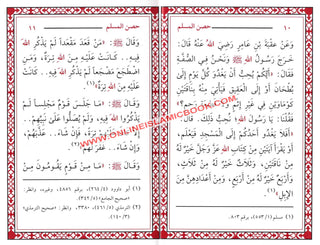 ١٠
حصن المسلم
وَعَنْ عُقْبَةَ بْنِ عَامِرٍ رَضِيَ اللهُ عَنْهُ قَالَ:
خَرَجَ رَسُولُ اللهِ ﷺ وَنَحْنُ فِي الصُّفَّةِ
فَقَالَ: «أَيُّكُمْ يُحِبُّ أَنْ يَغْدُوَ كُلَّ يَوْمٍ إِلَى
بُطْحَانَ أَوْ إِلَى الْعَقِيقِ فَيَأْتِيَ مِنْهُ بِنَاقَتَيْنِ
كَوْمَاوَيْنِ فِي غَيْرِ إِثْمٍ
فَقُلْنَا: يَا رَسُولَ اللهِ نُحِبُّ ذَلِكَ. قَالَ:
«أَفَلَا يَغْدُو أَحَدُكُمْ إِلَى الْمَسْجِدِ فَيَعْلَمَ،
أَوْ يَقْرَأَ آيَتَيْنِ مِنْ كِتَابِ اللهِ عَزَّ وَجَلَّ خَيْرٌ لَهُ
مِنْ نَاقَتَيْنِ، وَثَلَاثٌ خَيْرٌ لَهُ مِنْ ثَلَاثٍ،
وَأَرْبَعٌ خَيْرٌ لَهُ مِنْ أَرْبَعٍ، وَمِنْ أَعْدَادِهِنَّ مِنَ
الْإِبِلِ»(١)
(١) مسلم (١/ ٥٥٣)، برقم ٨٠٣.
حصن المسلم
١١
وَقَالَ ﷺ: «مَنْ قَعَدَ مَقْعَدًا لَمْ يَذْكُرِ اللهَ
فِيهِ.. كَانَتْ عَلَيْهِ مِنَ اللهِ تِرَةٌ، وَمَنِ
اضْطَجَعَ مَضْجَعًا لَمْ يَذْكُرِ اللهَ فِيهِ.. كَانَتْ
عَلَيْهِ مِنَ اللهِ تِرَةٌ»(١)
وَقَالَ ﷺ: «مَا جَلَسَ قَوْمٌ مَجْلِسًا لَمْ
يَذْكُرُوا اللهَ فِيهِ، وَلَمْ يُصَلُّوا عَلَى نَبِيِّهِمْ..
تِرَةً، فَإِنْ شَاءَ.. عَذَّبَهُمْ،
وَإِنْ شَاءَ.. غَفَرَ لَهُمْ»
وَقَالَ ﷺ: «مَا مِنْ قَوْمٍ يَقُومُونَ مِنْ
(١) أبو داود (٤/ ٢٦٤)، برقم ٤٨٥٦، وغيره، وانظر:
«صحيح الجامع» (٥/ ٣٤٢).
(٢) الترمذي (٥/ ٤٦١)، ٣٣٨٠، وانظر: «صحيح الترمذي»
(٣/ ١٤٠).
WWW.ONLINEISLAMICBOOK.COM